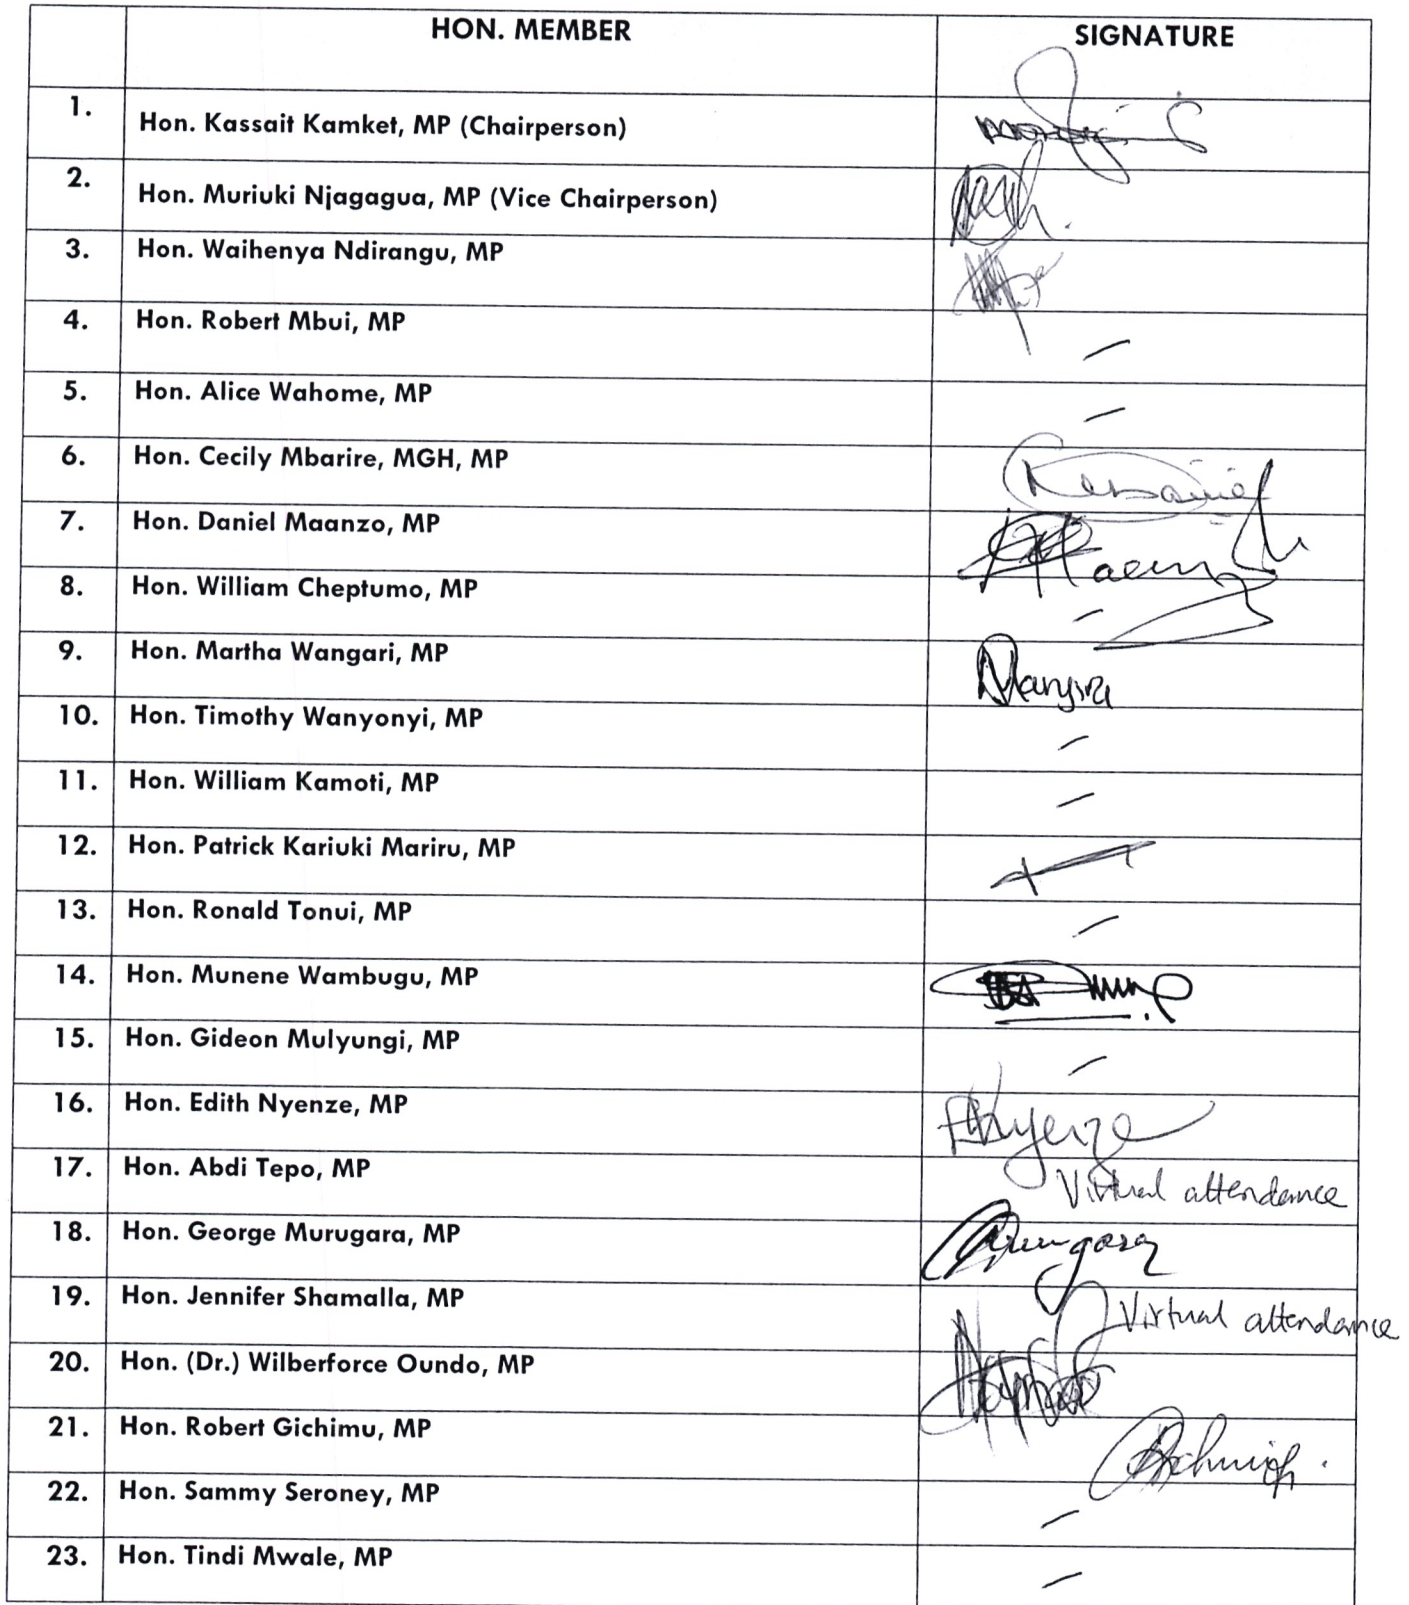 HON. MEMBER SIGNATURE
1. Hon. Kassait Kamket, MP (Chairperson)
2. Hon. Muriuki Njagagua, MP (Vice Chairperson)
3. Hon. Waihenya Ndirangu, MP
4. Hon. Robert Mbui, MP –
5. Hon. Alice Wahome, MP –
6. Hon. Cecily Mbarire, MGH, MP
7. Hon. Daniel Maanzo, MP
8. Hon. William Cheptumo, MP –
9. Hon. Martha Wangari, MP
10. Hon. Timothy Wanyonyi, MP –
11. Hon. William Kamoti, MP –
12. Hon. Patrick Kariuki Mariru, MP
13. Hon. Ronald Tonui, MP –
14. Hon. Munene Wambugu, MP
15. Hon. Gideon Mulyungi, MP –
16. Hon. Edith Nyenze, MP
17. Hon. Abdi Tepo, MP Virtual attendance
18. Hon. George Murugara, MP
19. Hon. Jennifer Shamalla, MP Virtual attendance
20. Hon. (Dr.) Wilberforce Oundo, MP
21. Hon. Robert Gichimu, MP
22. Hon. Sammy Seroney, MP –
23. Hon. Tindi Mwale, MP –